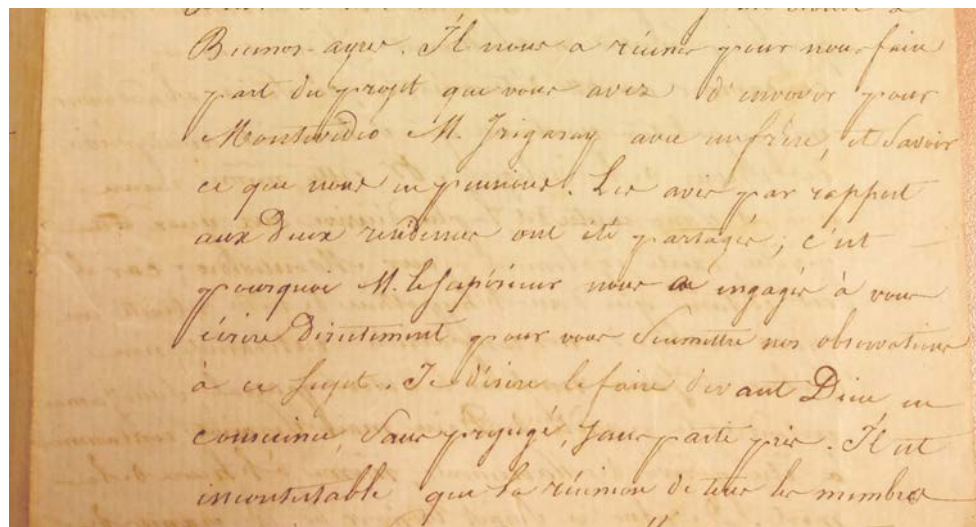 Buenos-ayres. Il nous a réunis pour nous faire
part du projet que vous avez d'envoyer pour
Montevideo M. Irigaray avec un frère, et savoir
ce que nous en pensions. Les avis par rapport
aux deux residences ont été partagés; c'est
pourquoi M. le Supérieur nous a engagés à vous
écrire directement pour vous soumettre nos observations
à ce sujet. Je désire le faire devant Dieu en
conscience sans préjugé, sans parti pris. Il est
incontestable que la réunion de tous les membres